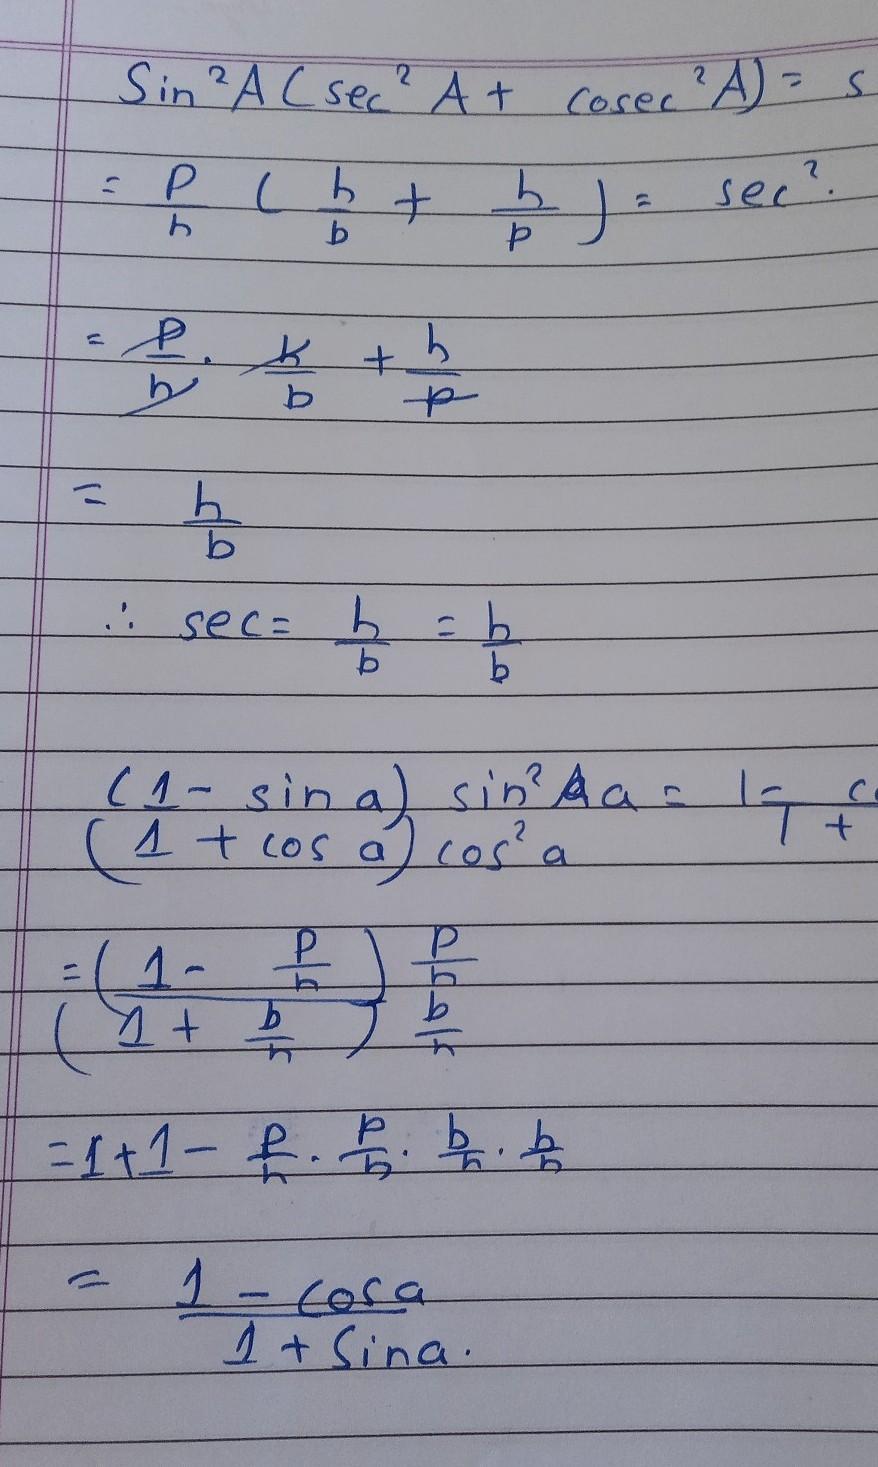 Sin²A(sec²A + cosec²A) = s
= p/h (h/b + h/p) = sec².
= p/h . h/b + h/p
= h/b
∴ sec = h/b = h/b
(1 - sin a) sin² a = 1 - c
(1 + cos a) cos² a 1 +
= (1 - p/h) p/h
(1 + b/h) b/h
= 1 + 1 - p/h . p/h . b/h . b/h
= 1 - cos a
1 + Sin a.